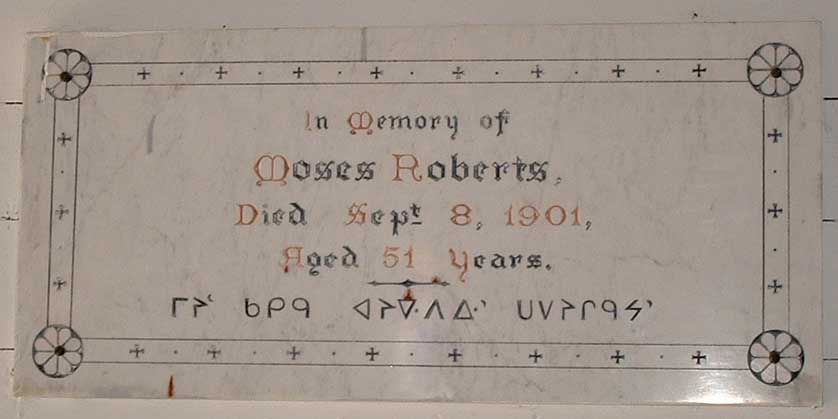 In Memory of
Moses Roberts,
Died Sept 8, 1901,
Aged 51 Years.
ᒥᔨᐠ ᑲᑭᑫ ᐊᔨᐁᐧᐱᐃᐧᐣ ᑌᐯᔨᒋᑫᔭᐣ